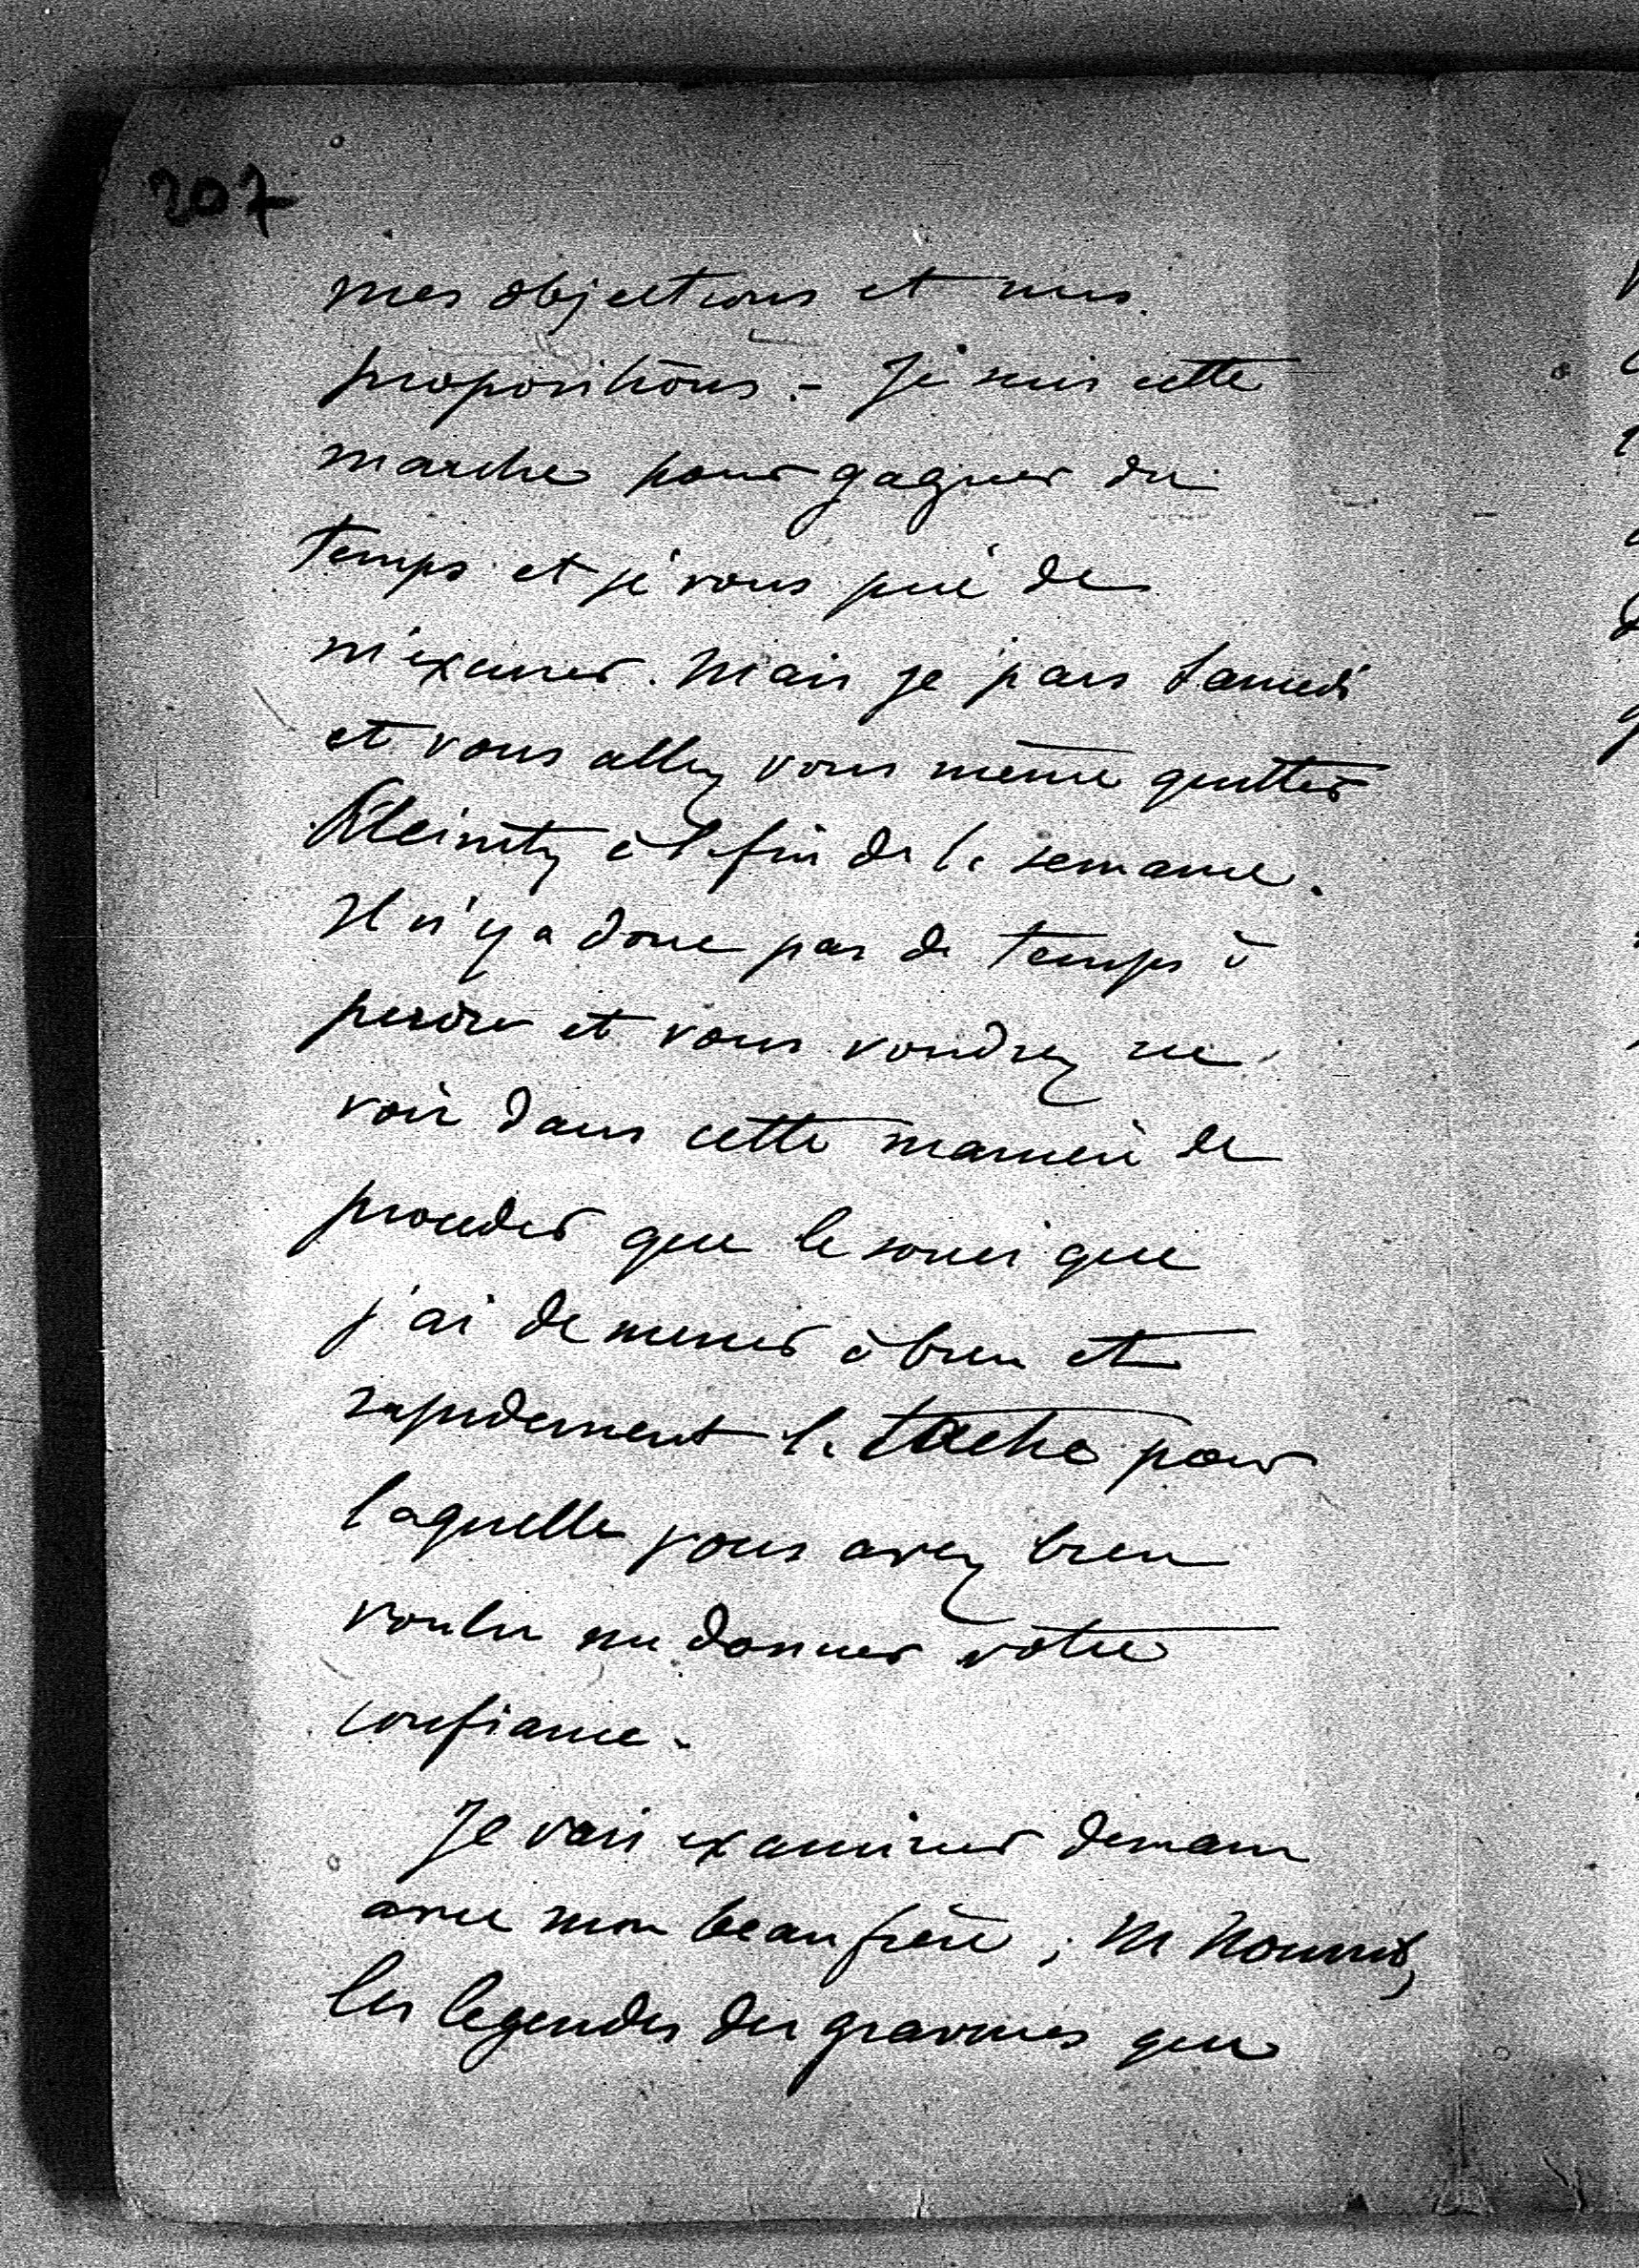 207
mes objections et mes
propositions. – Je suis cette
marche pour gagner du
temps et je vous prie de
m'excuser. Mais je pars Samedi
et vous allez vous même quitter
Kleinitz à la fin de la semaine.
Il n'y a donc pas de temps à
perdre et vous voudrez ne
voir dans cette manière de
proceder que le souci que
j'ai de mener à bien et
rapidement la tâche pour
laquelle vous avez bien
voulu me donner votre
confiance.
Je vais examiner demain
avec mon beau frère, M Nourrit,
les legendes des gravures que